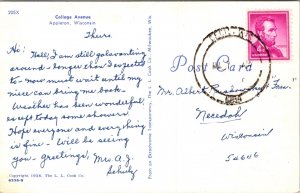 205X
College Avenue
Appleton, Wisconsin
Thurs
Hi: Well, I am still galavanting
around - longer than I expected
to - now must wait until my
niece can bring me back -
Weather has been wonderful
except today some showers
Hope everyone and everything
is fine - Will be seeing
you - Greetings, Mrs. A. J.
Schulz
Copyright 1948, The L. L. Cook Co.
Post Card
Mr. Albert
Necedah
Wisconsin
54646